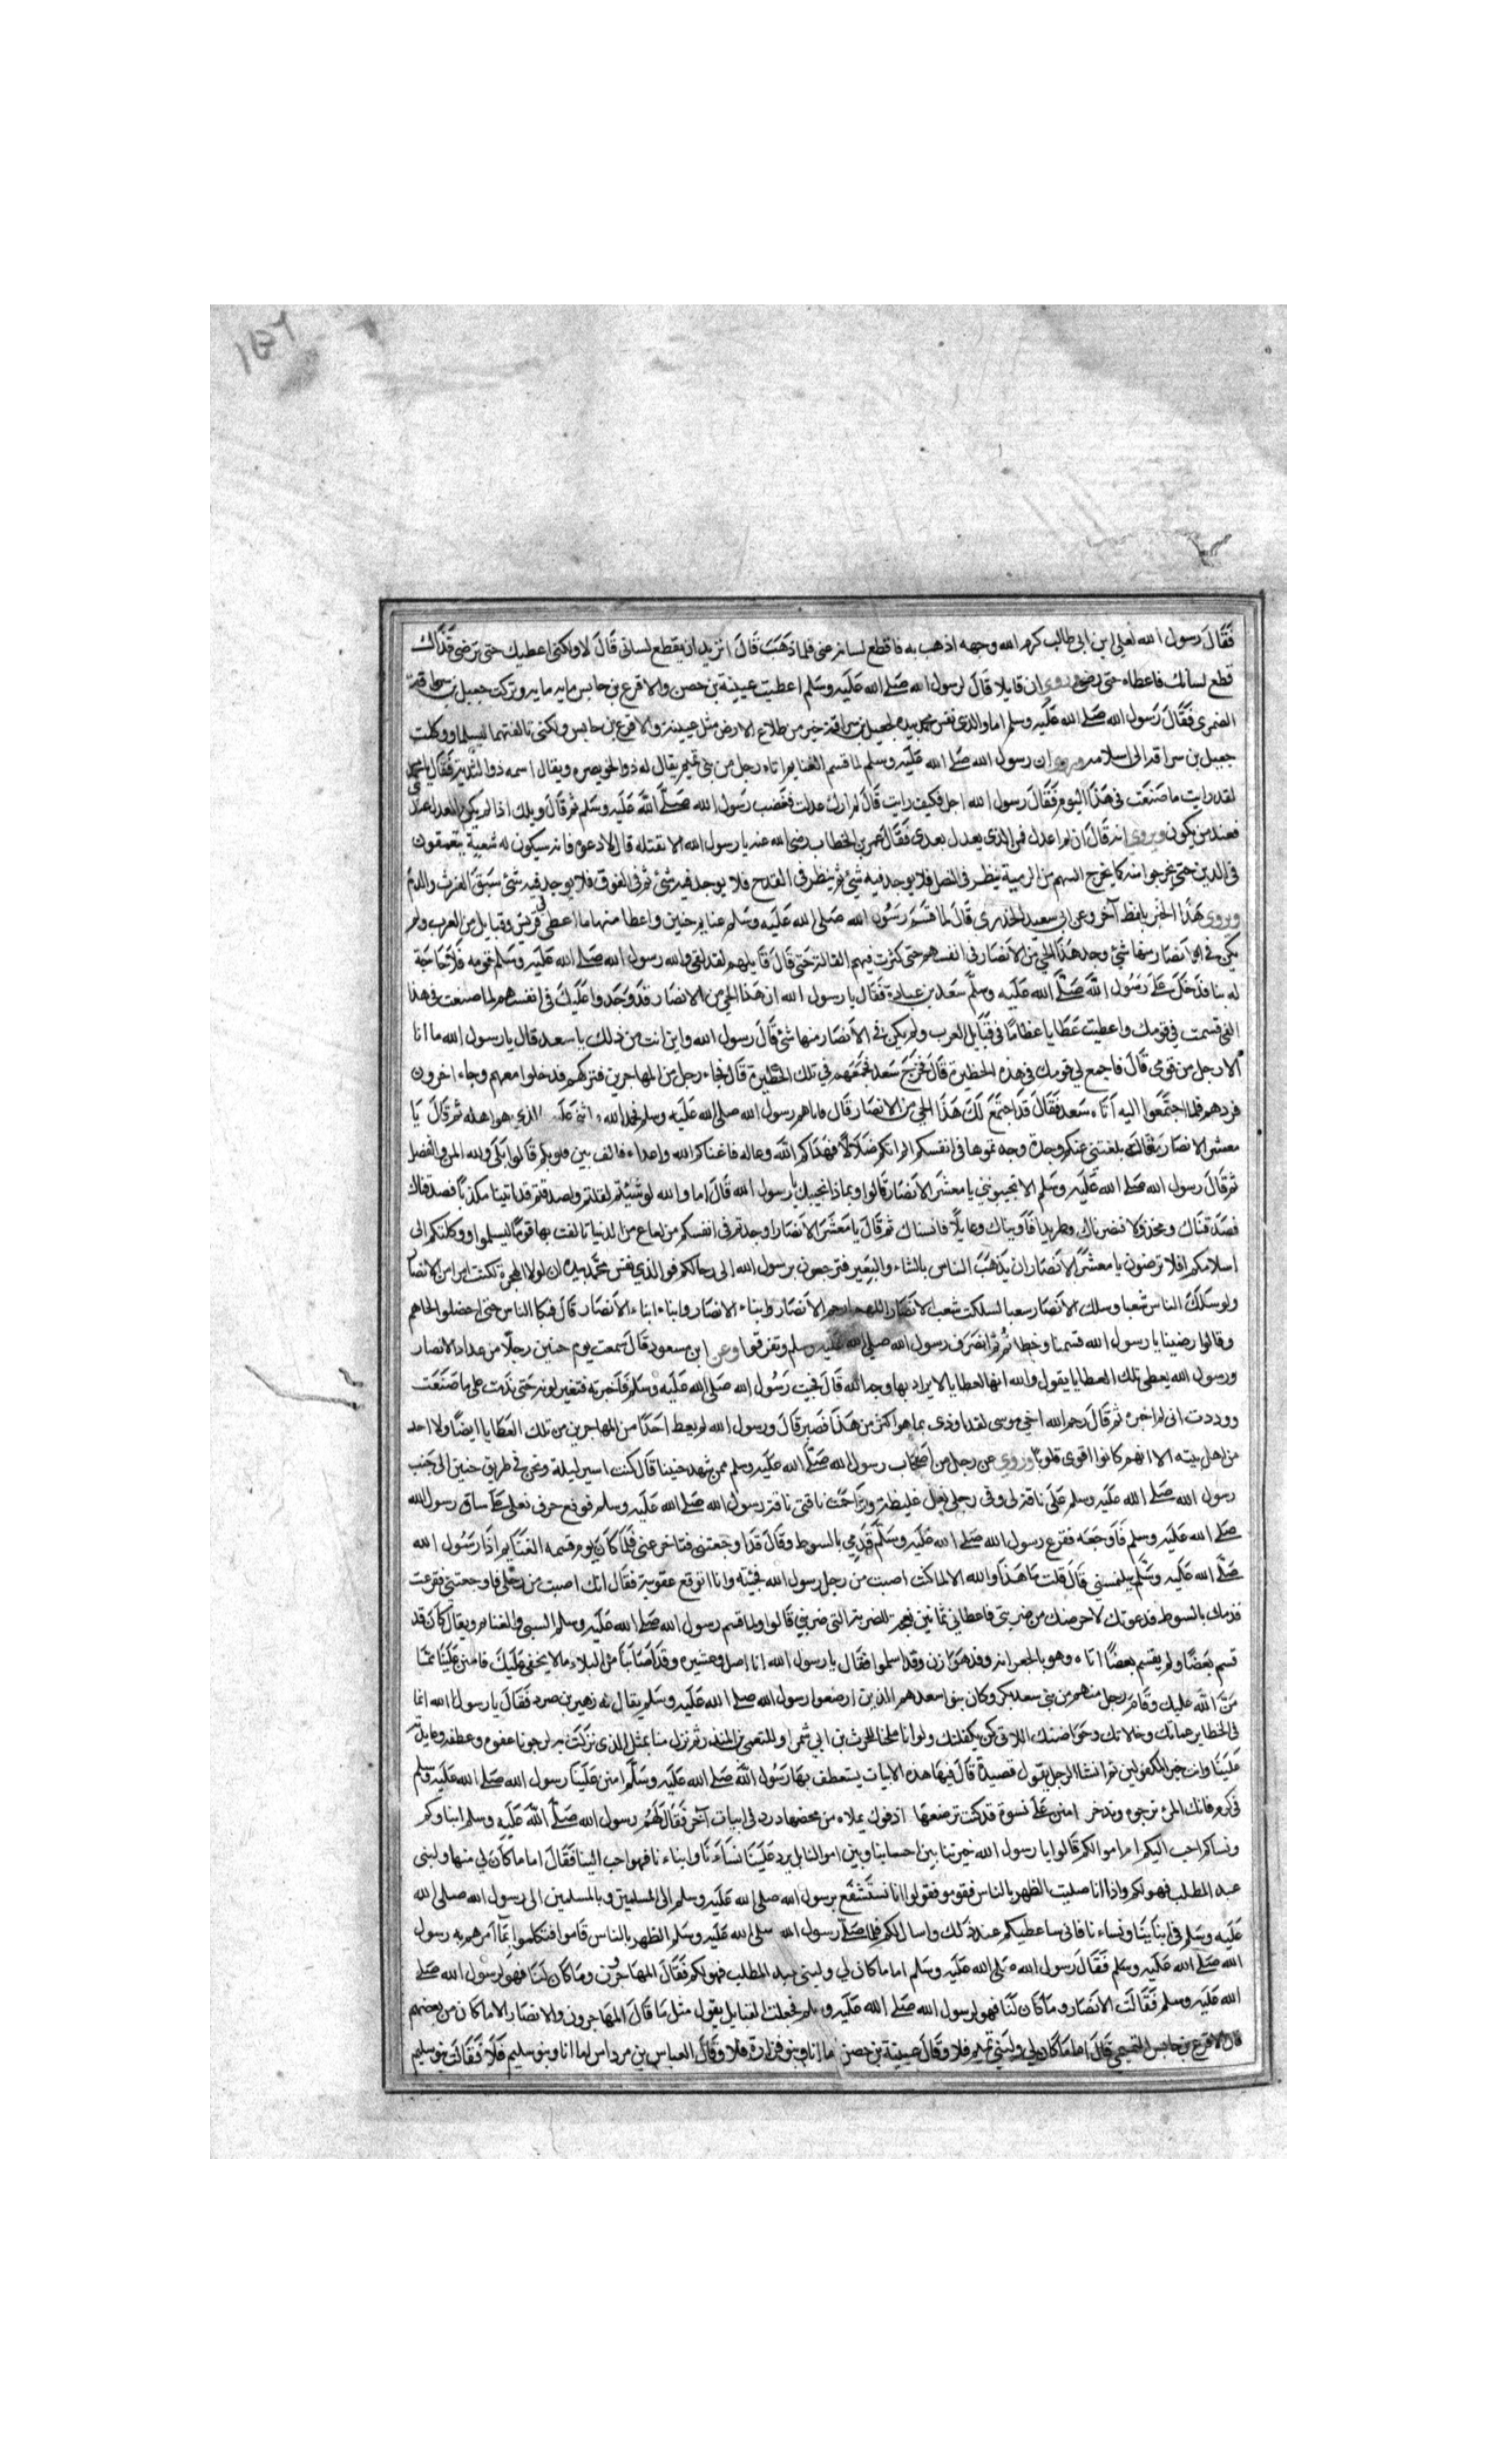 ١٥٦
فقال رسول الله لعلي ابن ابي طالب كرم الله وجهه اذهب به فاقطع لسانه عني فلما ذهب قال اتريد ان يقطع لساني قال لا ولكني اعطيك حتى ترضى فذاك
قطع لسانك فاعطاه حتى رضي وروي ان قايلا قال لرسول الله صلى الله عليه وسلم اعطيت عيينة بن حصن والاقرع بن حابس مايه مايه وتركت جعيل بن سراقة
الضمري فقال رسول الله صلى الله عليه وسلم اما والذي نفس محمد بيده لجعيل بن سراقة خير من طلاع الارض مثل عيينة والاقرع بن حابس ولكني تالفتهما ليسلما ووكلت
جعيل بن سراقة الى اسلامه وروي ان رسول الله صلى الله عليه وسلم لما قسم الغنايم اتاه رجل من بني تميم يقال له ذو الخويصره ويقال اسمه ذو الثدية فقال يا محمد
لقد رايت ما صنعت في هذا اليوم فقال رسول الله اجل فكيف رايت قال لم ارك عدلت فغضب رسول الله صلى الله عليه وسلم ثم قال ويلك اذا لم يكن العدل عندي
فعند من يكون ويروى انه قال ان لم اعدل فمن الذي يعدل بعدي فقال عمر بن الخطاب رضي الله عنه يا رسول الله الا نقتله قال لا دعوه فانه سيكون له شعية يتعمقون
في الدين حتى يخرجوا منه كما يخرج السهم من الرمية ينظر في النصل فلا يوجد فيه شئ ثم ينظر في القدح فلا يوجد فيه شئ ثم في الفوق فلا يوجد فيه شئ سبق الفرث والدم
ويروى هذا الخبر بلفظ آخر وعن ابي سعيد الخدري قال لما قسم رسول الله صلى الله عليه وسلم غنايم حنين واعطا منها ما اعطى في قريش وقبايل من العرب ولم
يكن في الانصار منها شئ وجد هذا الحي من الانصار في انفسهم حتى كثرت فيهم القالة حتى قال قايلهم لقد لقي والله رسول الله صلى الله عليه وسلم قومه فلا حاجة
له بنا فدخل على رسول الله صلى الله عليه وسلم سعد بن عبادة فقال يا رسول الله ان هذا الحي من الانصار قد وجدوا عليك في انفسهم لما صنعت في هذا
الفئ قسمت في قومك واعطيت عطايا عظاما في قبايل العرب ولم يكن في الانصار منها شئ قال رسول الله واين انت من ذلك يا سعد قال يا رسول الله ما انا
الا رجل من قومي قال فاجمع لي قومك في هذه الحظيرة قال فخرج سعد فجمعهم في تلك الحظيرة قال فجاء رجل من المهاجرين فتركهم فدخلوا معهم وجاء اخرون
فردهم فلما اجتمعوا اليه اتاه سعد فقال قد اجتمع لك هذا الحي من الانصار قال فاتاهم رسول الله صلى الله عليه وسلم فحمد الله واثنى عليه الذي هو اهله ثم قال يا
معشر الانصار ما قالة بلغتني عنكم وجدة وجدتموها في انفسكم الم اتكم ضلالا فهداكم الله وعالة فاغناكم الله واعداء فالف بين قلوبكم قالوا بلى ولله المن والفضل
ثم قال رسول الله صلى الله عليه وسلم الا تجيبونني يا معشر الانصار قالوا وبماذا نجيبك يا رسول الله قال اما والله لو شئتم لقلتم ولصدقتم قد اتيتنا مكذبا فصدقناك
فصدقناك ومخذولا فنصرناك وطريدا فآويناك وعايلا فاسيناك ثم قال يا معشر الانصار اوجدتم في انفسكم من لعاع من الدنيا تالفت بها قوما ليسلموا ووكلتكم الى
اسلامكم افلا ترضون يا معشر الانصار ان يذهب الناس بالشاء والبعير فترجعون برسول الله الى رحالكم فوالذي نفس محمد بيده ان لولا الهجرة لكنت امرا من الانصار
ولو سلك الناس شعبا وسلك الانصار سعبا لسلكت شعب الانصار اللهم ارحم الانصار وابناء الانصار وابناء ابناء الانصار قال فبكا الناس حتى اخضلوا لحاهم
وقالوا رضينا يا رسول الله قسمنا وخطا ثم انصرف رسول الله صلى الله عليه وسلم وتفرقوا وعن ابن مسعود قال سمعت يوم حنين رجلا من عداد الانصار
ورسول الله يعطي تلك العطايا يقول والله انها لعطايا لا يراد بها وجه الله قال فجيت رسول الله صلى الله عليه وسلم فاخبرته فتغير لونه حتى ندمت على ما صنعت
ووددت اني لم اخبره ثم قال رحم الله اخي موسى لقد اوذي بما هو اكثر من هذا فصبر قال ورسول الله لم يعط احدا من المهاجرين من تلك العطايا ايضا ولا احد
من اهل بيته الا انهم كانوا اقوى قلوبا وروي عن رجل من اصحاب رسول الله صلى الله عليه وسلم ممن شهد حنينا قال كنت اسير ليلة ونحن في طريق حنين الى جنب
رسول الله صلى الله عليه وسلم على ناقة لي وفي رجلي نعل غليظة وزاحمت ناقتي ناقة رسول الله صلى الله عليه وسلم فوقع حرف نعلي على ساق رسول الله
صلى الله عليه وسلم فاوجعه فقرع رسول الله صلى الله عليه وسلم قدمي بالسوط وقال قد اوجعتني فتاخر عني فلما كان يوم قسمه الغنايم اذا رسول الله
صلى الله عليه وسلم يلتمسني قال قلت ما هذا والله الا لما كنت اصبت من رجل رسول الله فجيته وانا اتوقع عقوبة فقال انك اصبت من رجلي فاوجعتني فقرعت
قدمك بالسوط فدعوتك لاعوضك من ضربتي فاعطاني ثمانين نعجة للضربة التي ضربني قالوا ولما قسم رسول الله صلى الله عليه وسلم السبي والغنام ويقال كان قد
قسم بعضا ولم يقسم بعضا اتاه وهو بالجعرانه وفد هوازن وقد اسلموا فقال يا رسول الله انا اصل وعشيره وقد اصابنا من البلاء ما لا يخفى عليك فامنن علينا مما
من الله عليك وقام رجل منهم من بني سعد بكر وكان بنو سعد هم الذين ارضعوا رسول الله صلى الله عليه وسلم يقال له زهير بن صرد فقال يا رسول الله انما
في الخطاير عماتك وخالاتك وحواضنك اللاتي كن يكفلنك ولو انا ملحنا للحرث بن ابي شمر او للنعمن بن المنذر ثم نزل منا بمثل الذي نزلت به لرجونا عفوه وعطفه وعايدته
علينا وانت خير المكفولين ثم انشا الرجل يقول قصيدة قال فيها هذه الابيات يستعطف بها رسول الله صلى الله عليه وسلم امنن علينا رسول الله صلى الله عليه وسلم
في كرم فانك المرء نرجوه وندخر امنن على نسوة قد كنت ترضعها اذ فوك يملاه من محضها درد في ابيات آخر فقال لهم رسول الله صلى الله عليه وسلم ابناوكم
ونساكم احب اليكم ام اموالكم قالوا يا رسول الله خيرتنا بين احسابنا وبين اموالنا بل يرد علينا نساءنا وابناءنا فهو احب الينا فقال اما ما كان لي منها ولبني
عبد المطلب فهو لكم واذا انا صليت الظهر بالناس فقوموا فقولوا انا نستشفع برسول الله صلى الله عليه وسلم الى المسلمين وبالمسلمين الى رسول الله صلى الله
عليه وسلم في ابناينا ونساءنا فاني ساعطيكم عند ذلك واسال لكم فلما صلى رسول الله صلى الله عليه وسلم الظهر بالناس قاموا فتكلموا بما آمرهم به رسول
الله صلى الله عليه وسلم فقال رسول الله صلى الله عليه وسلم اما ما كان لي ولبني عبد المطلب فهو لكم فقال المهاجرون وما كان لنا فهو لرسول الله صلى
الله عليه وسلم فقالت الانصار وما كان لنا فهو لرسول الله صلى الله عليه وسلم فجعلت القبايل يقول مثل ما قال المهاجرون والانصار الا ما كان من بعضهم
قال الاقرع بن حابس التميمي قال اما ما كان لي ولبني تميم فلا وقال عيينة بن حصن اما انا وبنو فزارة فلا وقال العباس بن مرداس اما انا وبنو سليم فلا فقالت بنو سليم